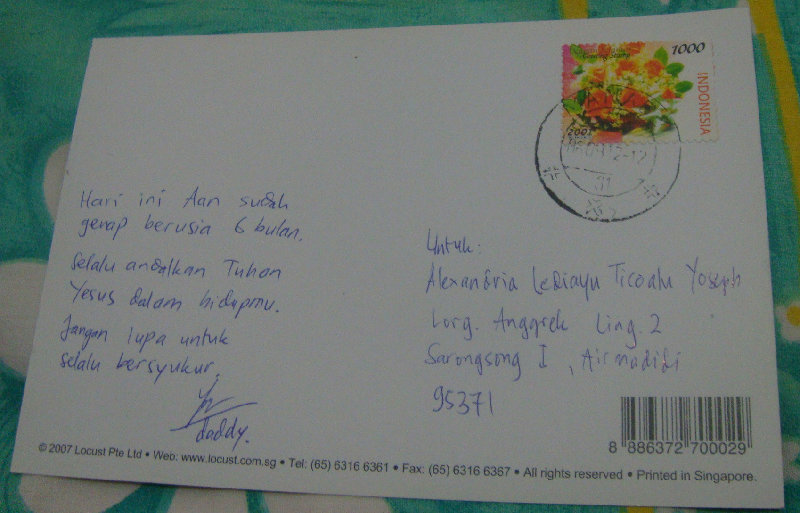 1000
INDONESIA
2007
Hari ini Aan sudah
genap berusia 6 bulan.
Selalu andalkan Tuhan
Yesus dalam hidupmu.
Jangan lupa untuk
selalu bersyukur.
daddy.
Untuk:
Alexandria Lediayu Ticoalu Yoseph
Lorg. Anggrek Ling. 2
Sarongsong I, Airmadidi
95371
8 886372 700029
© 2007 Locust Pte Ltd • Web: www.locust.com.sg • Tel: (65) 6316 6361 • Fax: (65) 6316 6367 • All rights reserved • Printed in Singapore.